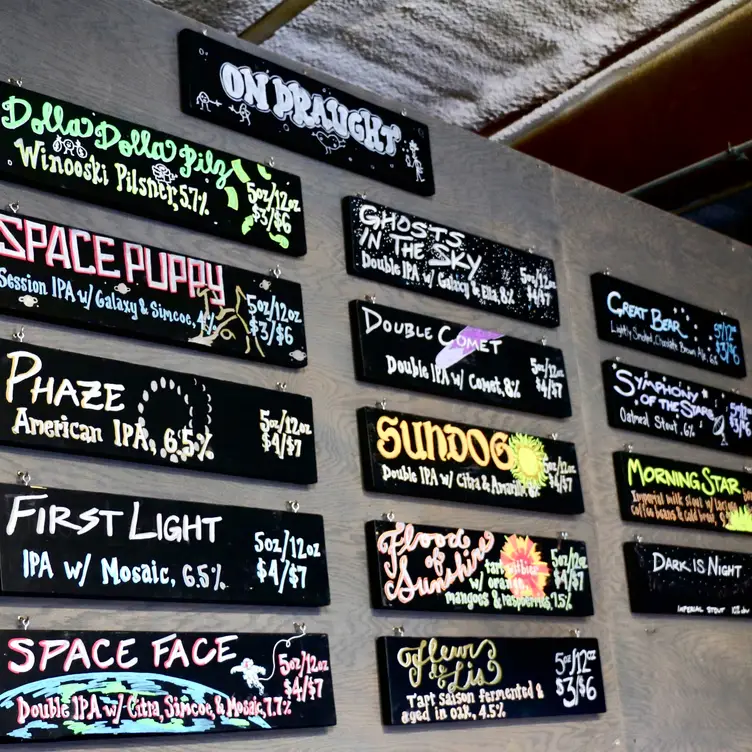 ON DRAUGHT
Dolla Dolla Pilz
Winooski Pilsner, 5.7%
5oz/12oz
$3/$6
SPACE PUPPY
Session IPA w/ Galaxy & Simcoe, 4%
5oz/12oz
$3/$6
PHAZE
American IPA, 6.5%
5oz/12oz
$4/$7
FIRST LIGHT
IPA w/ Mosaic, 6.5%
5oz/12oz
$4/$7
SPACE FACE
Double IPA w/ Citra, Simcoe, & Mosaic, 7.7%
5oz/12oz
$4/$7
GHOSTS
IN THE SKY
Double IPA w/ Galaxy & Ella, 8%
5oz/12oz
$4/$7
DOUBLE COMET
Double IPA w/ Comet, 8%
5oz/12oz
$4/$7
SUNDOG
Double IPA w/ Citra & Amarillo,
5oz/12oz
$4/$7
Flood of
Sunshine
tart witbier
w/ orange
mangoes & raspberries, 7.5%
5oz/12oz
$4/$7
Fleur
de Lis
Tart saison fermented &
aged in oak, 4.5%
5oz/12oz
$3/$6
GREAT BEAR
Lightly Smoked, Chocolate Brown Ale,
5oz/12oz
$3/$6
SYMPHONY
OF THE STARS
Oatmeal Stout, 6%
MORNING STAR
Imperial milk stout w/
Coffee beans & cold brew,
DARK IS NIGHT
IMPERIAL STOUT